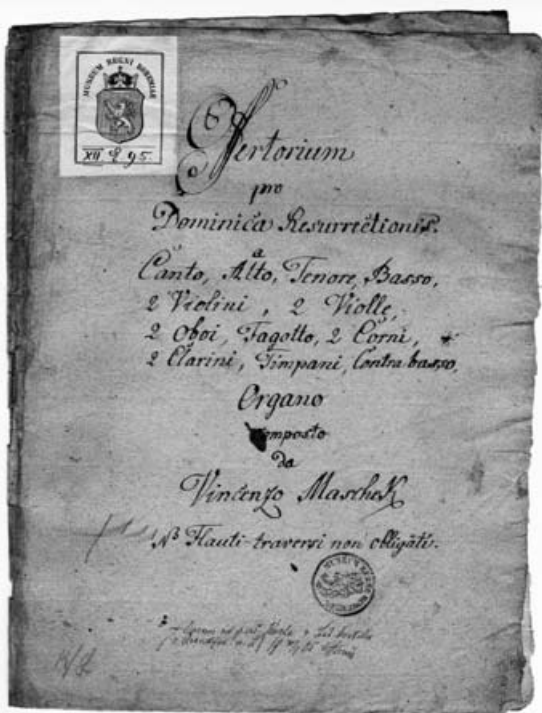 MUSEUM REGNI BOHEMIAE
XII E 95.
Offertorium
pro
Dominica Resurrectionis.
a
Canto, Alto, Tenore, Basso,
2 Violini, 2 Violle,
2 Oboi, Fagotto, 2 Corni,
2 Clarini, Timpani, Contra basso,
Organo
composto
da
Vincenzo Maschek
NB Flauti-traversi non obligati.